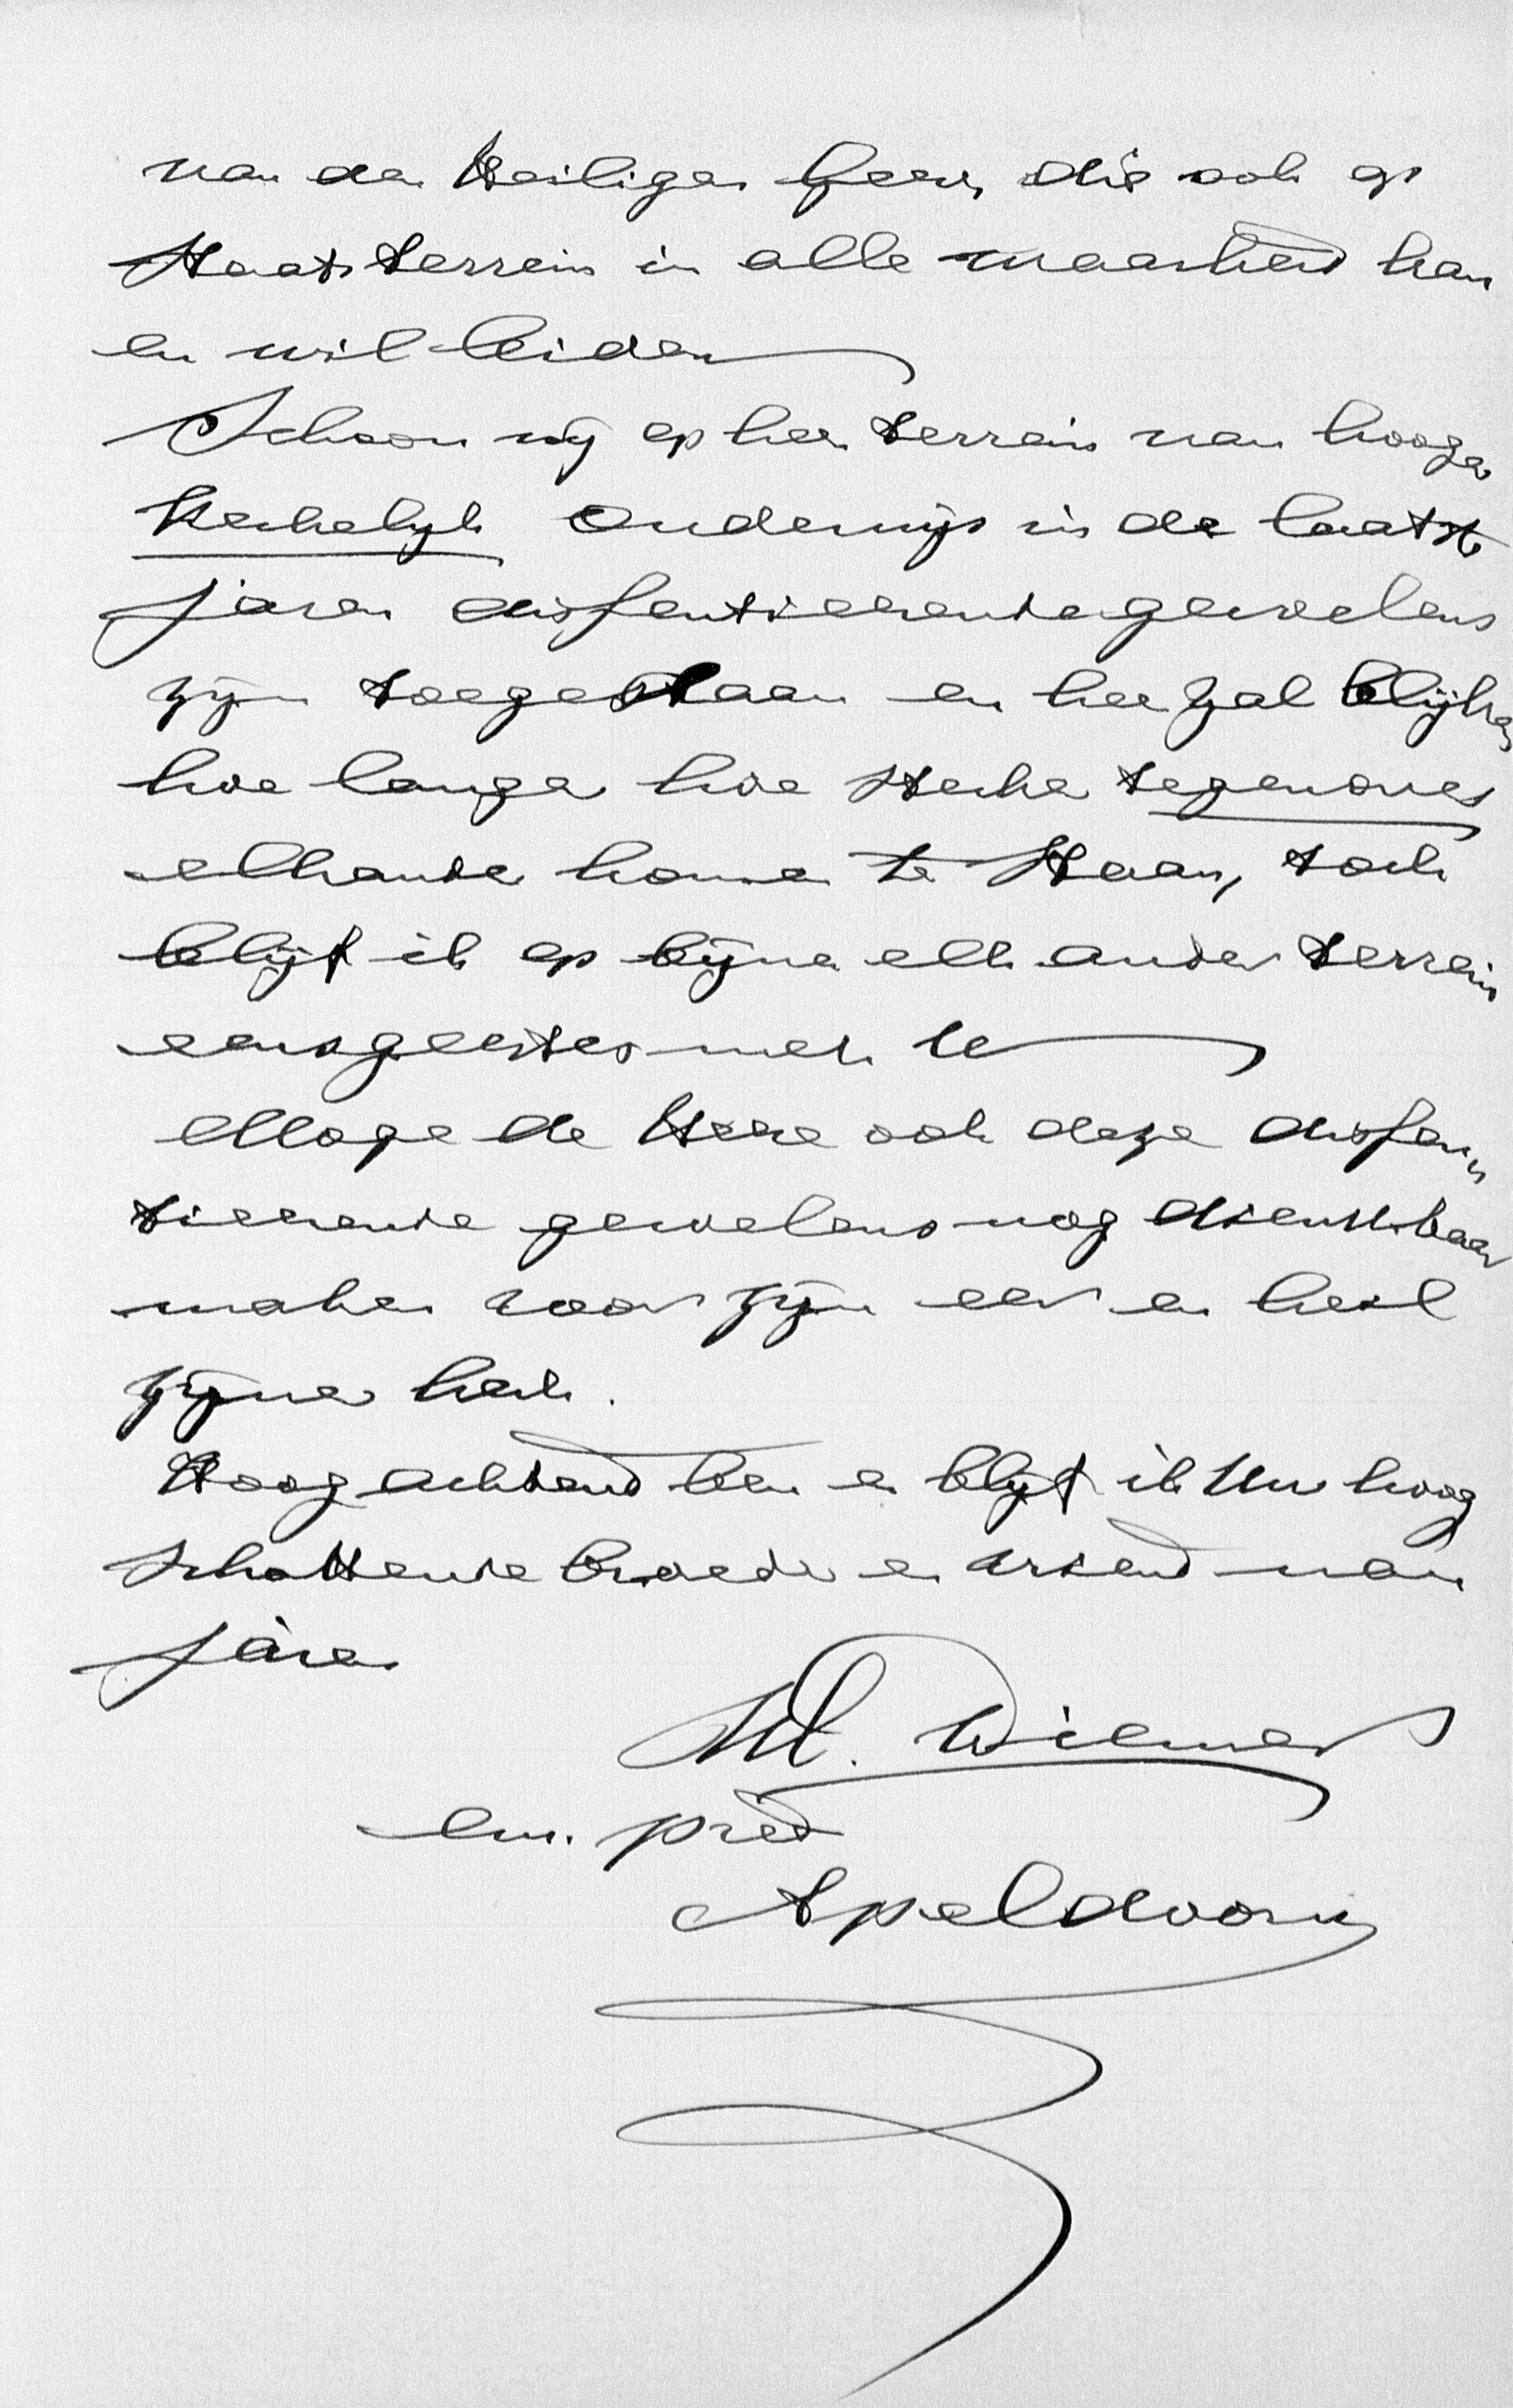 van den Heiligen Geest, die ook op
Staatsterrein in alle waarheid kan
en wil leiden
Schoon wij op het terrein van hooger
Kerkelijk Onderwijs in de laatste
jaren dissentieerende gevoelens
zijn toegedaan en het zal blijken
hoe langer hoe sterker tegenover
elkander komen te staan, toch
blijf ik op bijna elk ander terrein
eensgeestes met U
Moge de Heere ook deze dissen„
tieerende gevoelens nog dienstbaar
maken voor zijn eer en heil
zijner kerk.
Hoogachtend ben en blijf ik Uw hoog
schattende broeder en vriend van
jaren
Wiemer
em. pred
Apeldoorn